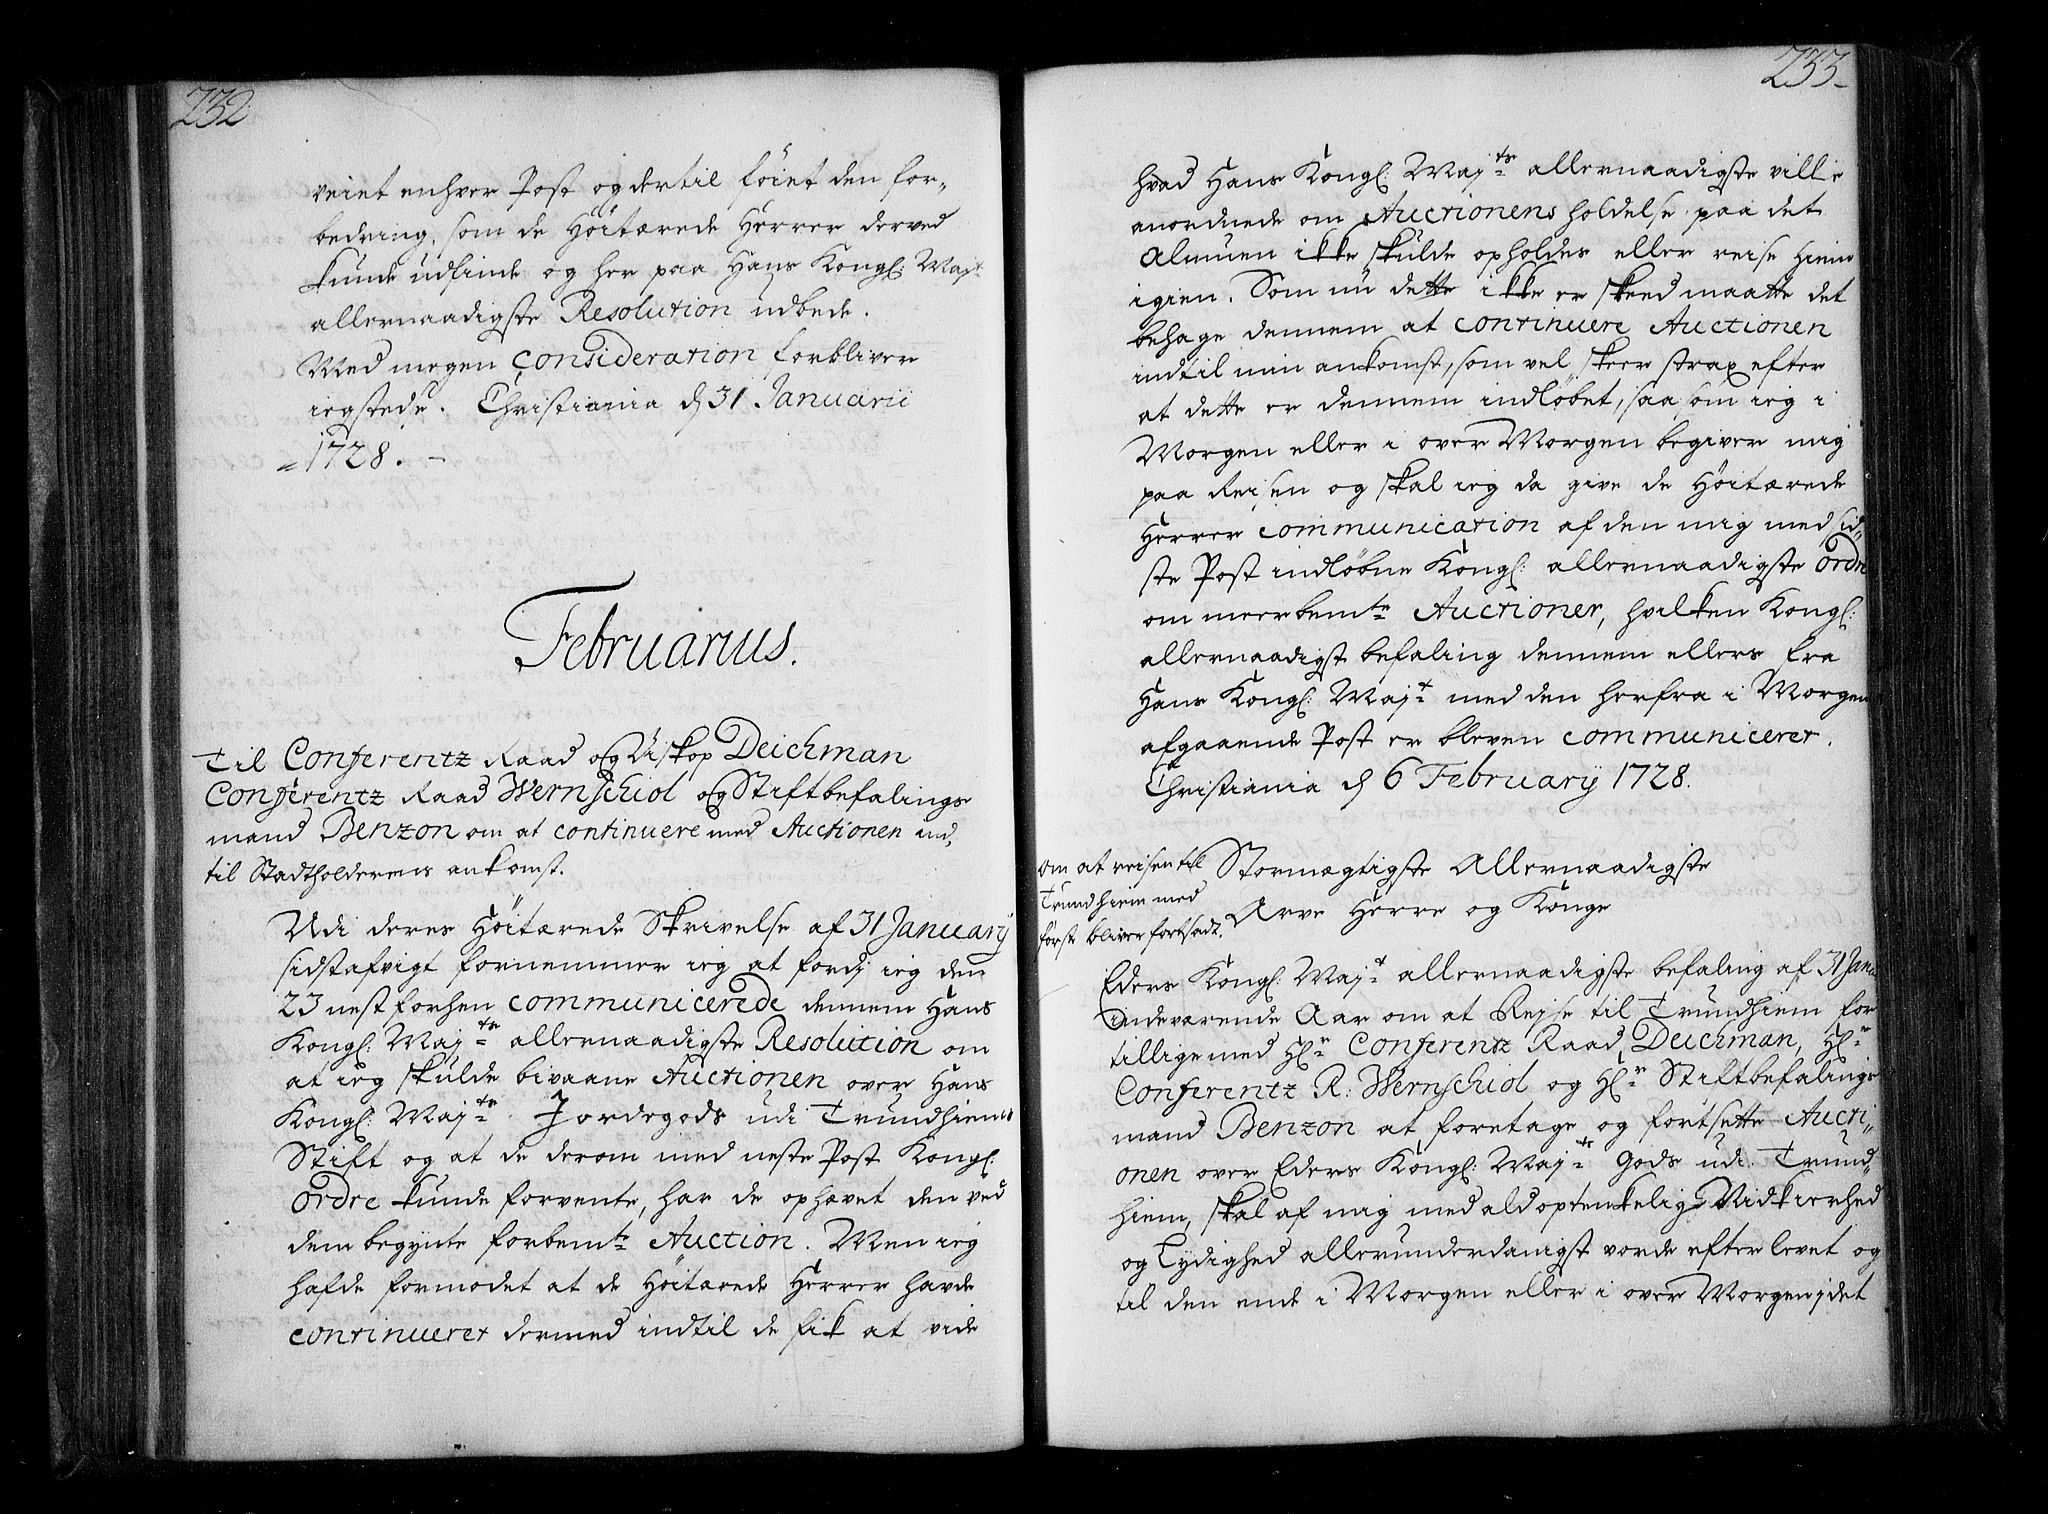 232
veiet enhver Post og dertil föiet den for-
bedring, som de Höitærede Herrer derved
kunde udfinde og her paa Hans Kongl: Mayt
allernaadigste Resolution udbede.
Med megen consideration forbliver
iegstede. Christiania d 31 Januarii
1728.
Februarius.
Til Conferentz Raad og Biskop Deichman
Conferentz Raad Wernschiol og Stiftbefalings
mand Benzon om at continuere med Auctionen ind,
til Stadtholderens ankomst.
Udi deres Höitærede Skrivelse af 31 January
sidstafvigt fornemmer ieg at fordj ieg den
23 nest forhen communicerede dennem Hans
Kongl: Majts allernaadigste Resolution om
at ieg skulde bivaane Auctionen over Hans
Kongl: Majts Jordegods udi Trundhiems
Stift og at de derom med neste Post Kongl:
Ordre kunde forvente, har de ophævet den ved
dem begynte forbemte Auction. Men ieg
hafde formodet at de Höitærede Herrer havde
continueret dermed indtil de fik at vide
233
hvad Hans Kongl: Majts allernaadigste ville
anordnede om Auctionens holdelse paa det
Almuen ikke skulde opholdes eller reise hiem
igien. Som nu dette ikke er skeed maatte det
behage dennem at continuere Auctionen
indtil min ankomst, som vel skeer strax efter
at dette er dennem indlöbet, saasom ieg i
Morgen eller i over Morgen begiver mig
paa Reisen og skal ieg da give de Höitærede
Herrer communication af den mig med sid-
ste Post indlöbne Kongl: allernaadigste Ordre
om meerbemte Auctioner, hvilken Kongl:
allernaadigst befaling dennem ellers fra
Hans Kongl: Majt med den herfra i Morgen
afgaaende Post er bleven communiceret.
Christiania d 6 February 1728.
om at reisen til
Trundhiem med
först bliver fortsadt.
Stormægtigste Allernaadigste
Arve Herre og Konge
Eders Kongl: Majts allernaadigste befaling af 31 Janu
indeværende Aar om at Rejse til Trundhiem for
tillige med Hr Conferentz Raad Deichman, Hr
Conferentz R: Wernschiol og Hr Stiftbefalings
mand Benzon at foretage og fortsette Aucti-
onen over Eders Kongl: Majts Gods udi Trund-
hiem, skal af mig med ald optenkelig Vidkierhed
og Lydighed allerunderdanigst vorde efterlevet og
til den ende i Morgen eller i over Morgen i det